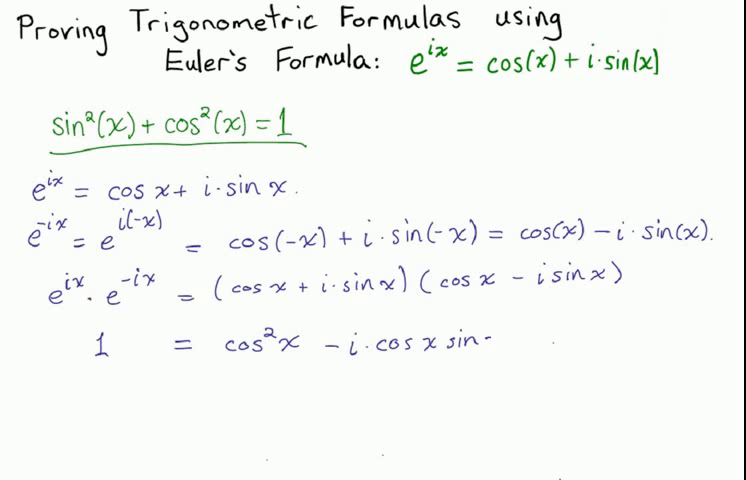 Proving Trigonometric Formulas using
Euler's Formula: e^{ix} = cos(x) + i·sin(x)
sin²(x) + cos²(x) = 1
e^{ix} = cos x + i·sin x.
e^{-ix} = e^{i(-x)} = cos(-x) + i·sin(-x) = cos(x) - i·sin(x).
e^{ix}·e^{-ix} = (cos x + i·sin x)(cos x - i sin x)
1 = cos²x - i·cos x sin-